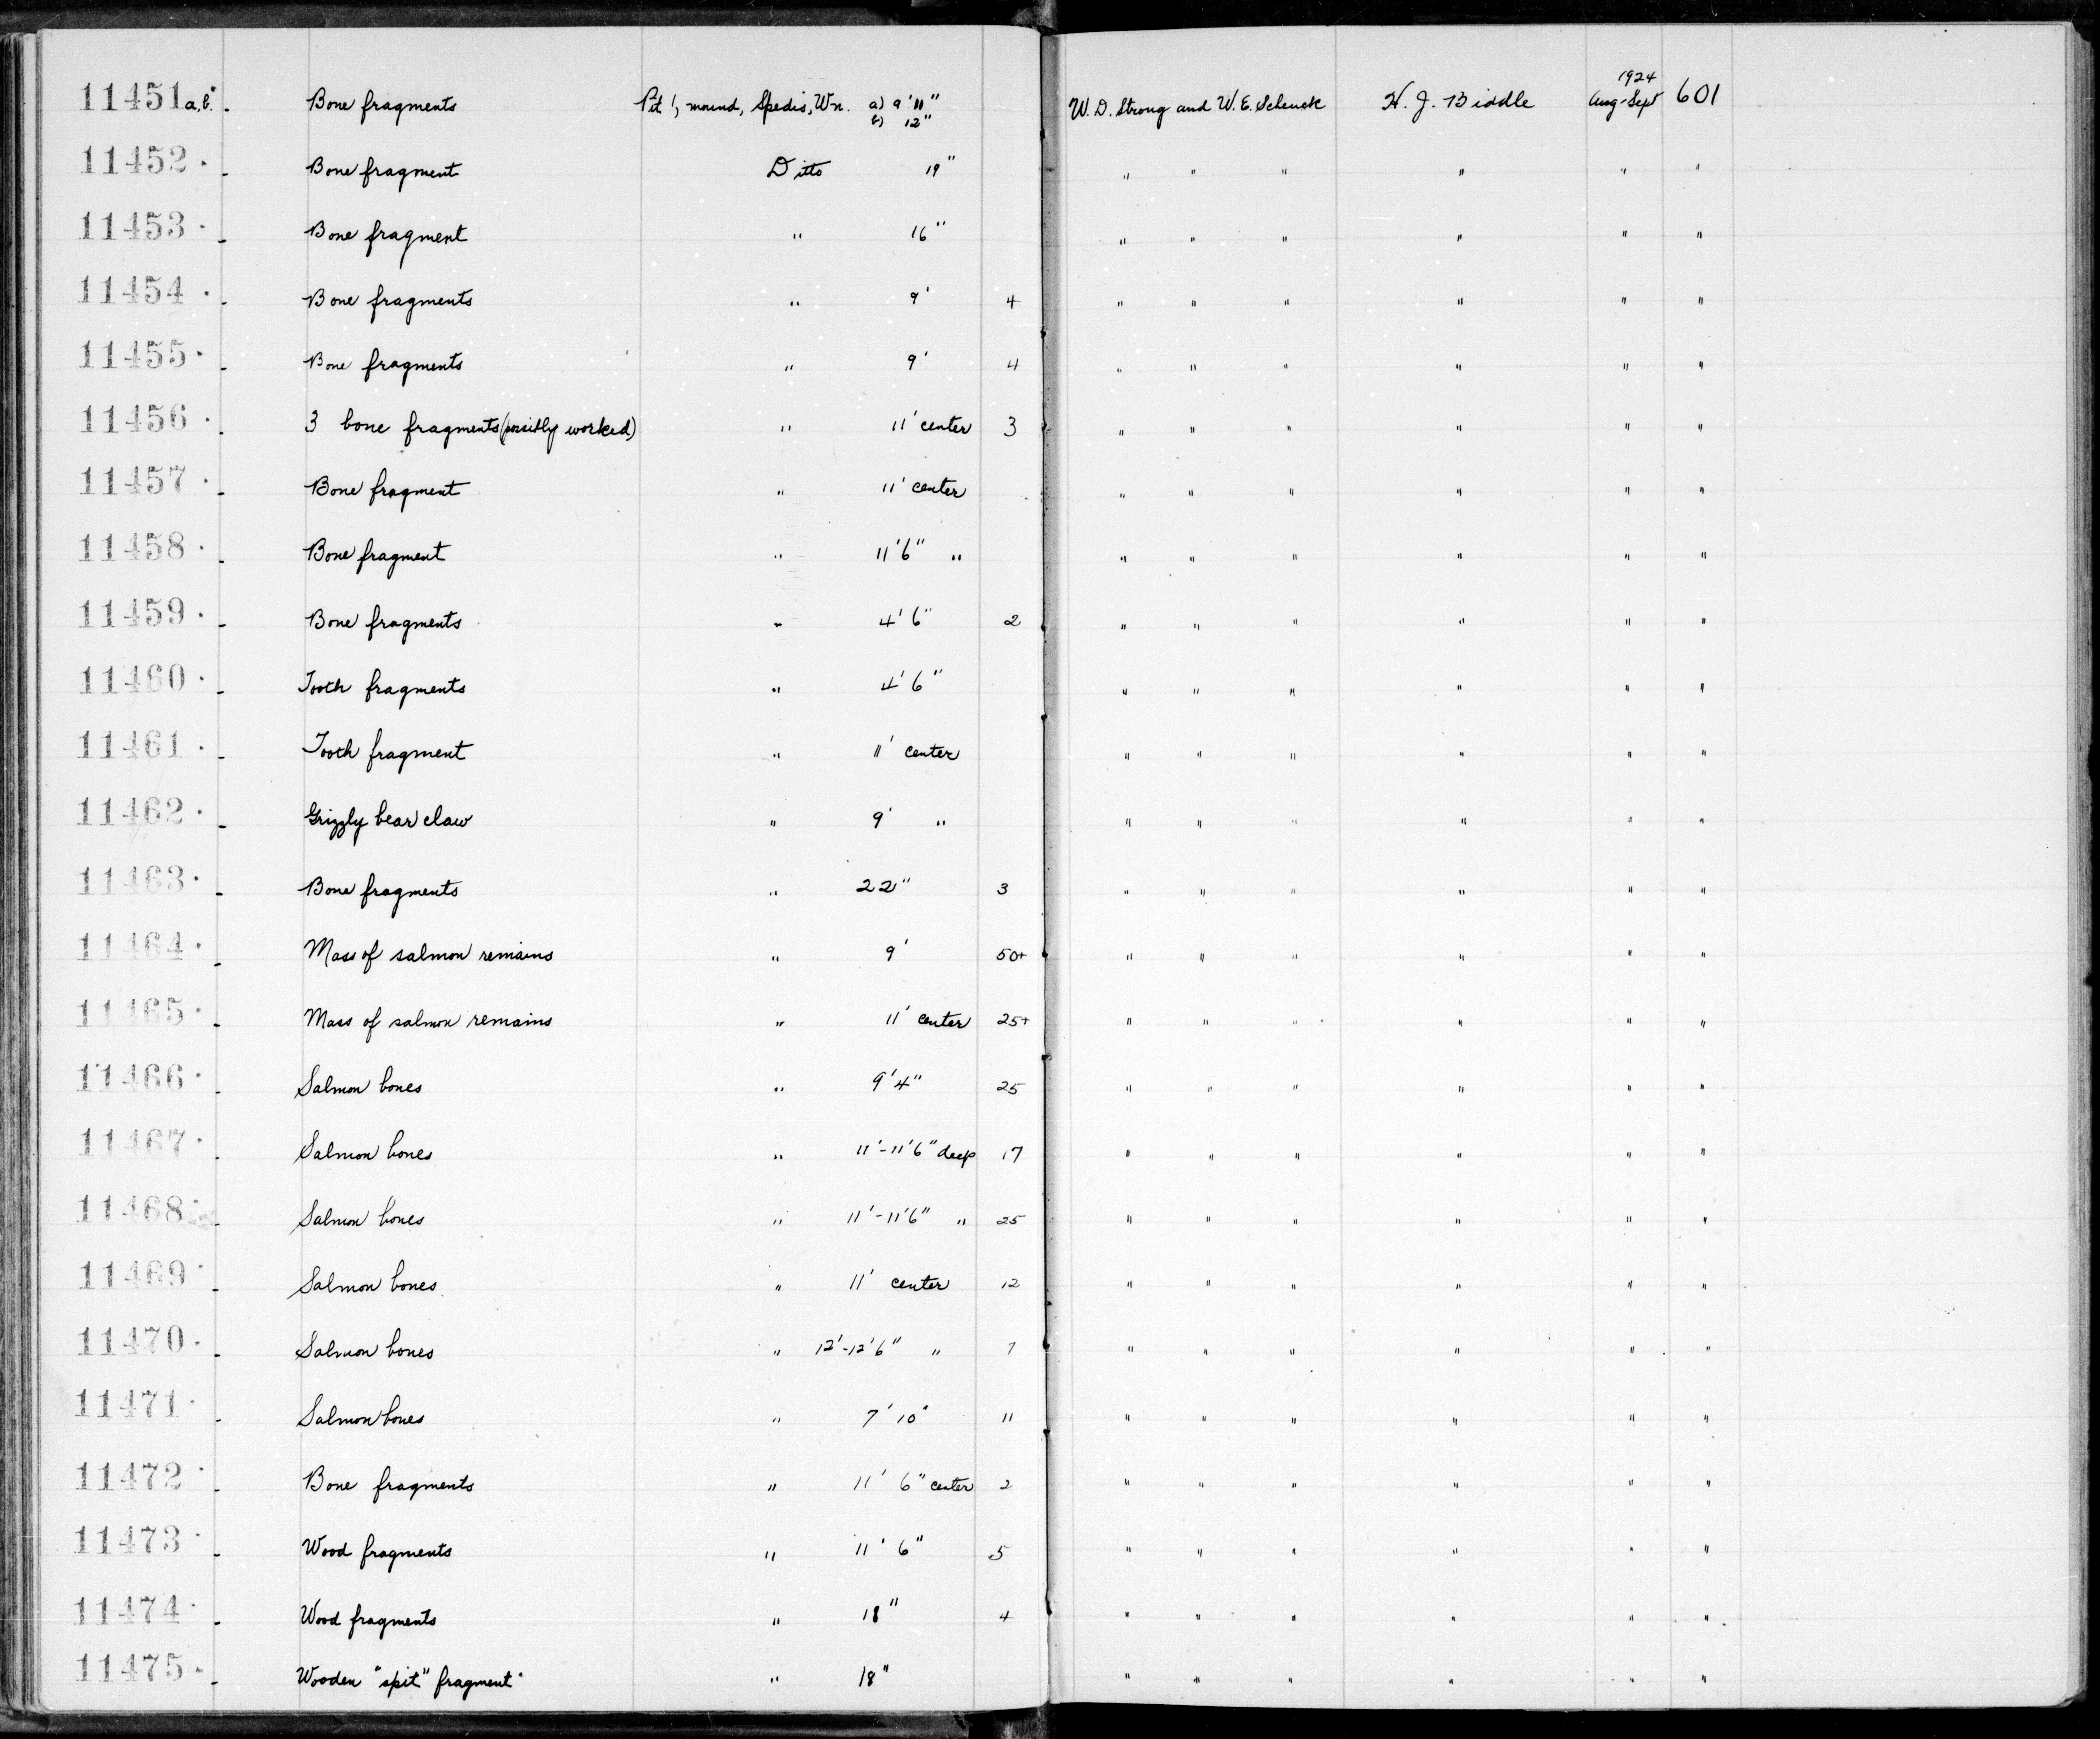 11451a,b. - Bone fragments Pit 1, mound, Spedis, Wn. a) 9'11" b) 12" W. D. Strong and W. E. Schenck H. J. Biddle 1924 Aug-Sept 601
11452. - Bone fragment Ditto 19" " " " " " "
11453. - Bone fragment " 16" " " " " " "
11454. - Bone fragments " 9' 4 " " " " " "
11455. - Bone fragments " 9' 4 " " " " " "
11456. - 3 bone fragments (possibly worked) " 11' center 3 " " " " " "
11457. - Bone fragment " 11' center " " " " " "
11458. - Bone fragment " 11'6" " " " " " " "
11459. - Bone fragments " 4'6" 2 " " " " " "
11460. - Tooth fragments " 4'6" " " " " " "
11461. - Tooth fragment " 11' center " " " " " "
11462. - Grizzly bear claw " 9' " " " " " " "
11463. - Bone fragments " 22" 3 " " " " " "
11464. - Mass of salmon remains " 9' 50+ " " " " " "
11465. - Mass of salmon remains " 11' center 25+ " " " " " "
11466. - Salmon bones " 9'4" 25 " " " " " "
11467. - Salmon bones " 11'-11'6" deep 17 " " " " " "
11468. - Salmon bones " 11'-11'6" " 25 " " " " " "
11469. - Salmon bones " 11' center 12 " " " " " "
11470. - Salmon bones " 12'-12'6" " " " " " " "
11471. - Salmon bones " 7'10" 11 " " " " " "
11472. - Bone fragments " 11' 6" center 2 " " " " " "
11473. - Wood fragments " 11' 6" 5 " " " " " "
11474. - Wood fragments " 18" 4 " " " " " "
11475. - Wooden "spit" fragment " 18" " " " " " "